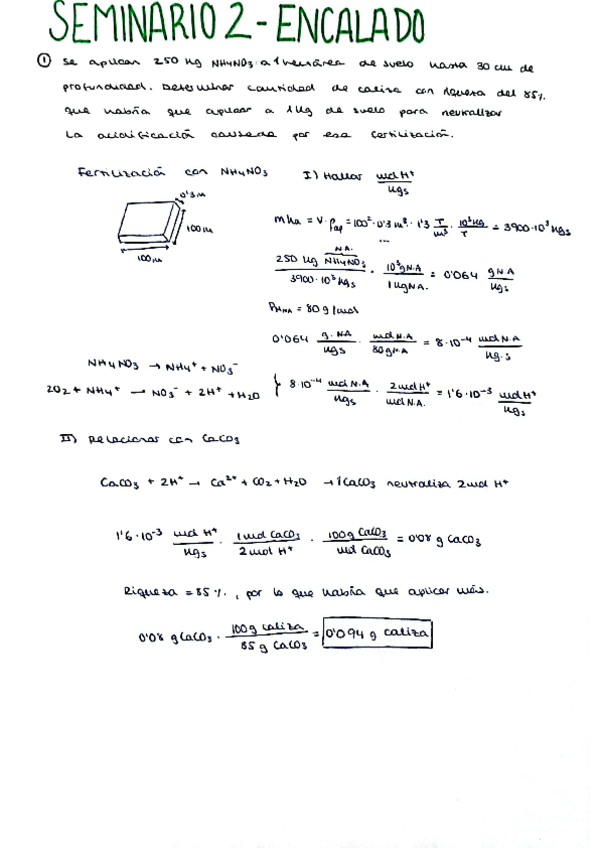 SEMINARIO 2 - ENCALADO
① Se aplican 250 Kg NH4NO3 a 1 hectárea de suelo hasta 30 cm de
profundidad. Determinar cantidad de caliza con riqueza del 85%
que habría que aplicar a 1Kg de suelo para neutralizar
la acidificación causada por esa fertilización.
Fertilización con NH4NO3
I) Hallar mol H+ / Kgs
0'3 m
100 m
100 m
m ha = V · ρap = 100² · 0'3 m³ · 1'3 T/m³ · 10³ Kg/T = 3900 · 10³ Kgs
N.A.
250 Kg NH4NO3 / 3900 · 10³ Kgs · 10³ g N.A / 1 Kg N.A. = 0'064 g N.A / Kgs
PM NA = 80 g/mol
0'064 g. NA / Kgs · mol N.A / 80 g N.A = 8 · 10⁻⁴ mol N.A / Kg. s
NH4NO3 → NH4+ + NO3-
2O2 + NH4+ → NO3- + 2H+ + H2O } 8 · 10⁻⁴ mol N.A / Kgs · 2 mol H+ / mol N.A. = 1'6 · 10⁻³ mol H+ / Kgs
II) Relacionar con CaCO3
CaCO3 + 2H+ → Ca2+ + CO2 + H2O → 1 CaCO3 neutraliza 2 mol H+
1'6 · 10⁻³ mol H+ / Kgs · 1 mol CaCO3 / 2 mol H+ · 100 g CaCO3 / mol CaCO3 = 0'08 g CaCO3
Riqueza = 85 %, por lo que habría que aplicar más.
0'08 g CaCO3 · 100 g caliza / 85 g CaCO3 = 0'094 g caliza